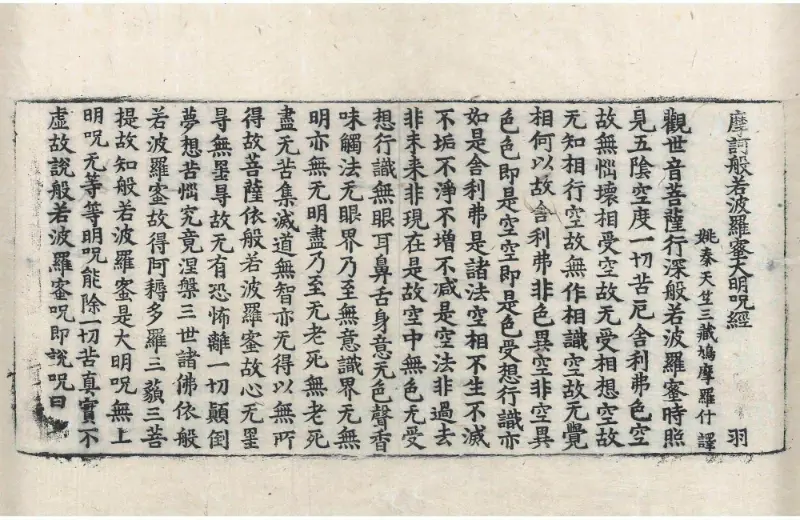 摩訶般若波羅蜜大明呪經 羽
姚秦天竺三藏鳩摩羅什譯
觀世音菩薩行深般若波羅蜜時照
見五陰空度一切苦厄舍利弗色空
故無惱壞相受空故无受相想空故
无知相行空故無作相識空故无覺
相何以故舍利弗非色異空非空異
色色即是空空即是色受想行識亦
如是舍利弗是諸法空相不生不滅
不垢不淨不增不減是空法非過去
非未来非現在是故空中無色无受
想行識無眼耳鼻舌身意无色聲香
味觸法无眼界乃至無意識界无無
明亦無无明盡乃至无老死無老死
盡无苦集滅道無智亦无得以無所
得故菩薩依般若波羅蜜故心无罣
㝵無罣㝵故无有恐怖離一切顛倒
夢想苦惱究竟涅槃三世諸佛依般
若波羅蜜故得阿耨多羅三藐三菩
提故知般若波羅蜜是大明呪無上
明呪无等等明呪能除一切苦真實不
虛故說般若波羅蜜呪即說呪曰